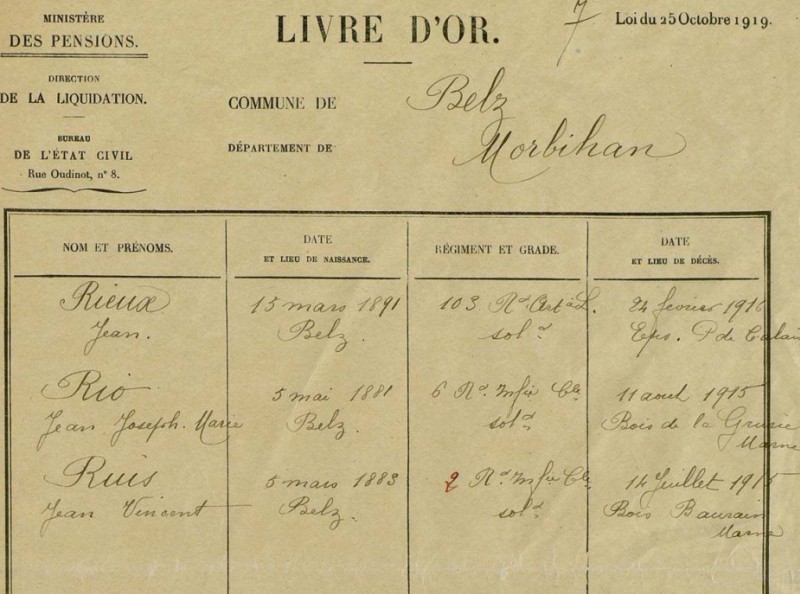 MINISTÈRE
DES PENSIONS.
DIRECTION
DE LA LIQUIDATION.
BUREAU
DE L'ÉTAT CIVIL
Rue Oudinot, n° 8.
LIVRE D'OR.
7
Loi du 25 Octobre 1919.
COMMUNE DE Belz
DÉPARTEMENT DE Morbihan
NOM ET PRÉNOMS.
DATE
ET LIEU DE NAISSANCE.
RÉGIMENT ET GRADE.
DATE
ET LIEU DE DÉCÈS.
Rieux 15 mars 1891 103 Rt. Art à L. 24 février 1916
Jean. Belz. solt. P de Calais
Rio 5 mai 1881 6 Rt. Infie Cle 11 aout 1915
Jean Joseph. Marie Belz. solt. Bois de la Grurie
Marne
Ruis 5 mars 1883 2 Rt. Infie Cle 14 Juillet 1915
Jean Vincent Belz. solt. Bois Baurain
Marne